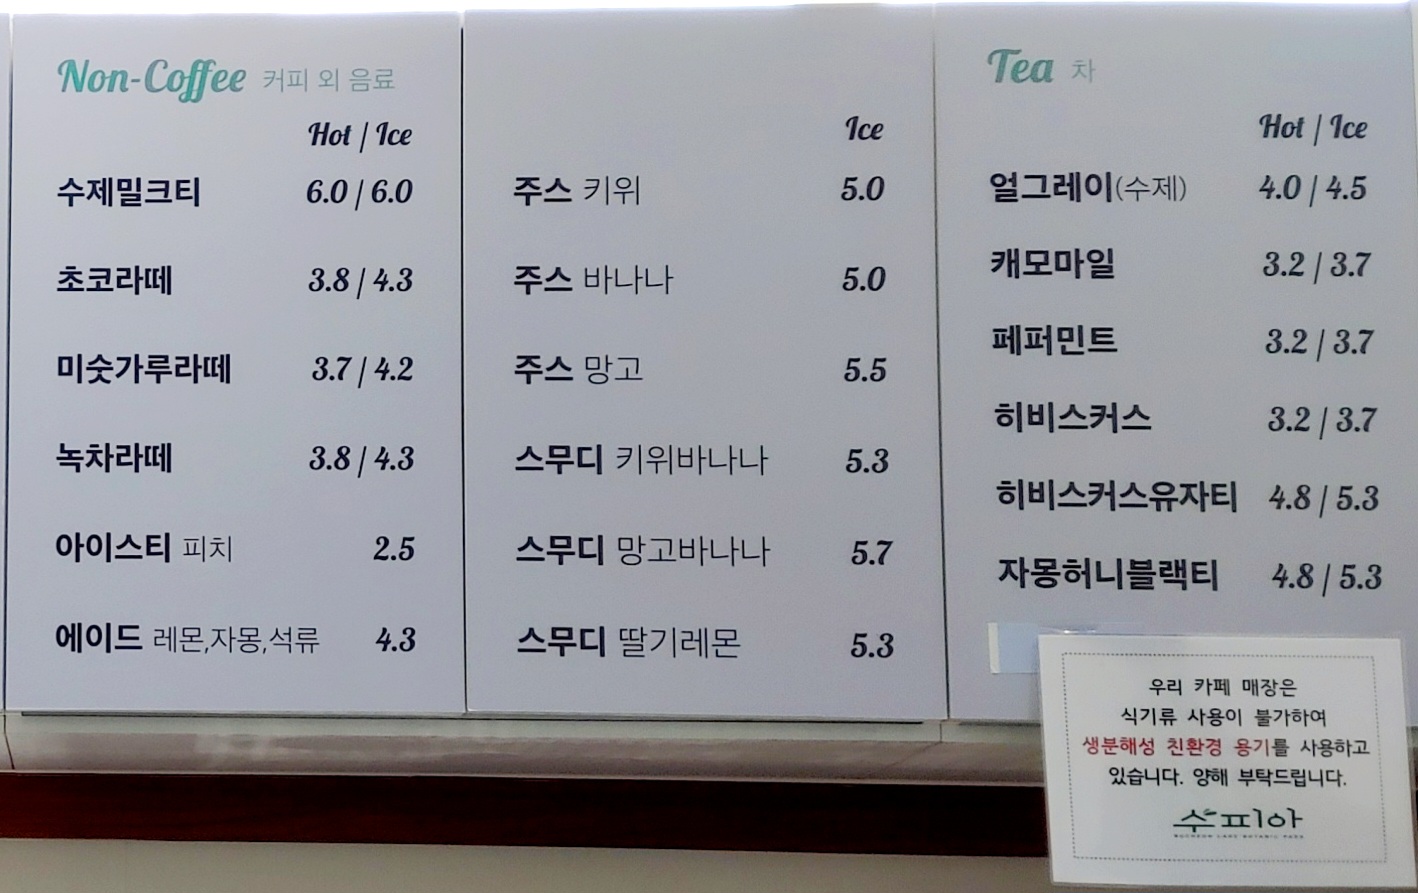 Non-Coffee 커피 외 음료
Hot / Ice
수제밀크티 6.0 / 6.0
초코라떼 3.8 / 4.3
미숫가루라떼 3.7 / 4.2
녹차라떼 3.8 / 4.3
아이스티 피치 2.5
에이드 레몬,자몽,석류 4.3
Ice
주스 키위 5.0
주스 바나나 5.0
주스 망고 5.5
스무디 키위바나나 5.3
스무디 망고바나나 5.7
스무디 딸기레몬 5.3
Tea 차
Hot / Ice
얼그레이(수제) 4.0 / 4.5
캐모마일 3.2 / 3.7
페퍼민트 3.2 / 3.7
히비스커스 3.2 / 3.7
히비스커스유자티 4.8 / 5.3
자몽허니블랙티 4.8 / 5.3
우리 카페 매장은
식기류 사용이 불가하여
생분해성 친환경 용기를 사용하고
있습니다. 양해 부탁드립니다.
수피아